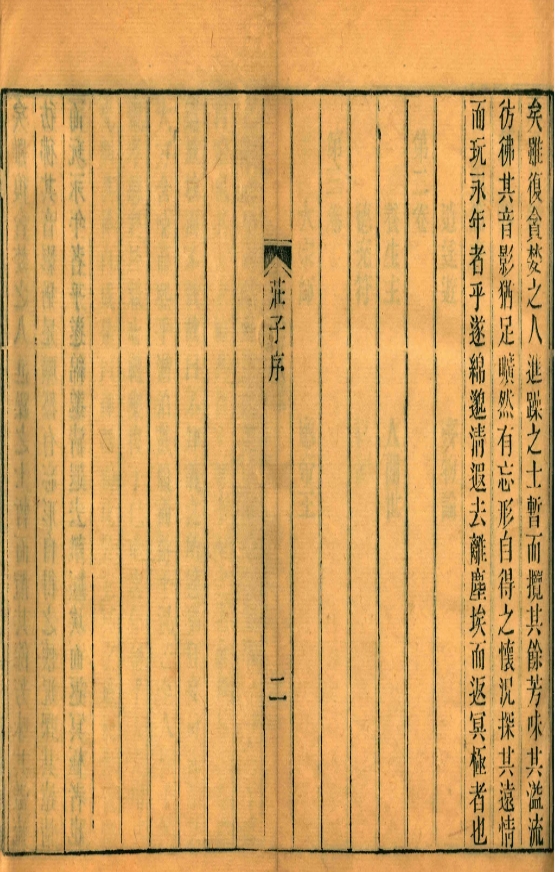 矣雖復貪婪之人進躁之士暫而攬其餘芳味其溢流
彷彿其音影猶足曠然有忘形自得之懷況探其遠情
而玩永年者乎遂綿邈清遐去離塵埃而返冥極者也
莊子序
二